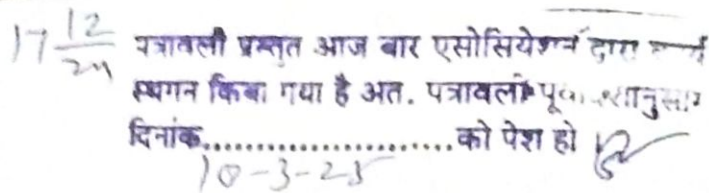 17 12/24 पत्रावली प्रस्तुत आज बार एसोसियेशन द्वारा कार्य
स्थगन किया गया है अत. पत्रावली पूर्वादेशानुसार
दिनांक........................को पेश हो
10-3-25